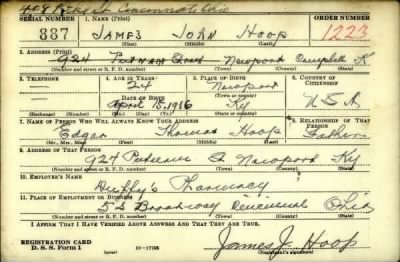 409 Pike St Cincinnati Ohio
SERIAL NUMBER 1. NAME (Print) ORDER NUMBER
337 JAMES JOHN HOOP 1223
(First) (Middle) (Last)
2. ADDRESS (Print)
924 PUTNAM Street Newport Campbell K.
(Number and street or R. F. D. number) (Town) (County) (State)
3. TELEPHONE 4. AGE IN YEARS 5. PLACE OF BIRTH 6. COUNTRY OF CITIZENSHIP
24 Newport
DATE OF BIRTH (Town or county)
April 18, 1916 Ky U.S.A.
(Exchange) (Number) (Mo.) (Day) (Yr.) (State or country)
7. NAME OF PERSON WHO WILL ALWAYS KNOW YOUR ADDRESS 8. RELATIONSHIP OF THAT PERSON
Edgar Thomas Hoop Father
(Mr., Mrs., Miss) (First) (Middle) (Last)
9. ADDRESS OF THAT PERSON
924 Putnam St Newport Ky
(Number and street or R. F. D. number) (Town) (County) (State)
10. EMPLOYER'S NAME
Duffy's Pharmacy
11. PLACE OF EMPLOYMENT OR BUSINESS
Broadway Cincinnati Ohio
(Number and street or R. F. D. number) (Town) (County) (State)
I AFFIRM THAT I HAVE VERIFIED ABOVE ANSWERS AND THAT THEY ARE TRUE.
REGISTRATION CARD
D. S. S. Form 1 James J. Hoop
(Registrant's signature)